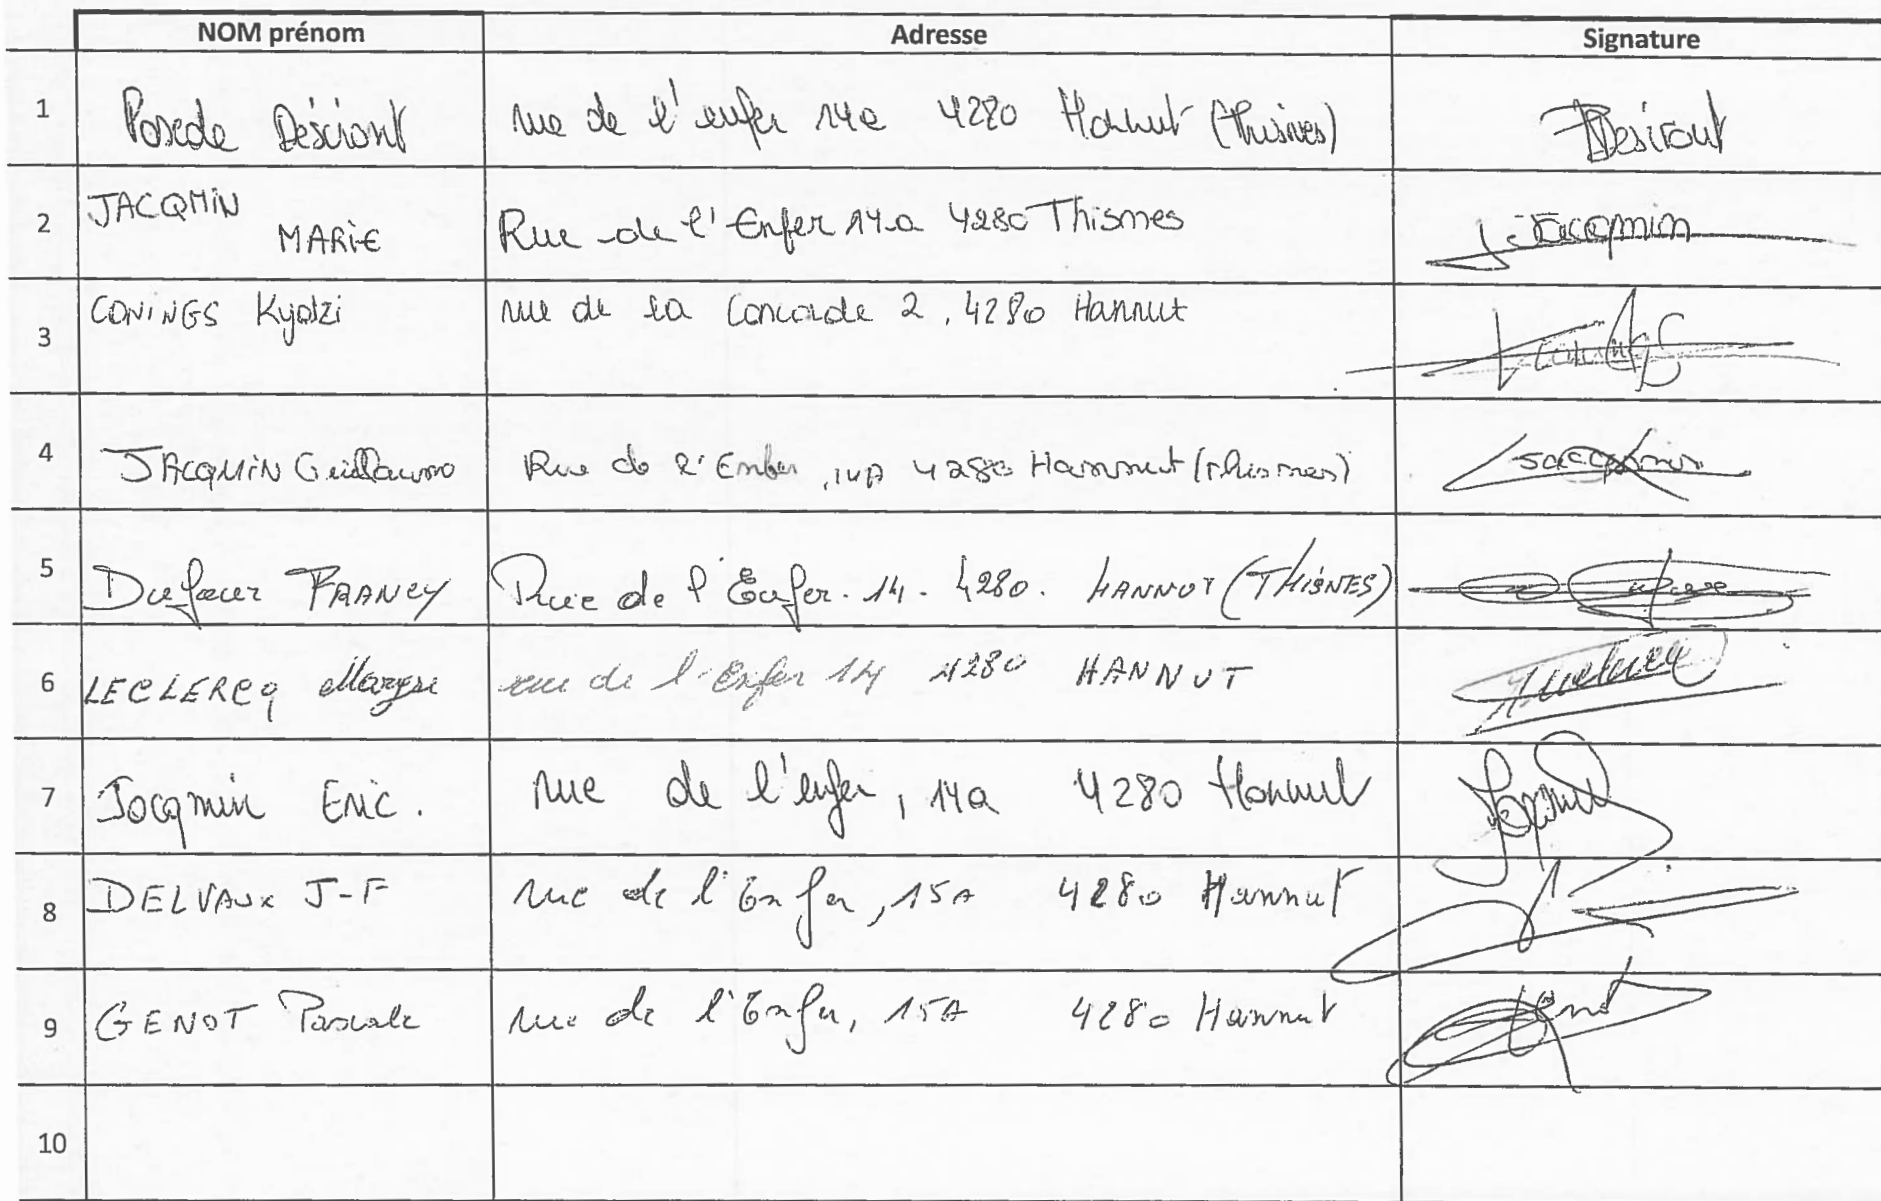 NOM prénom Adresse Signature
1 Pascale Désiront rue de l'enfer 14a 4280 Hannut (Thisnes) Désiront
2 JACQMIN MARIE Rue de l'Enfer 14a 4280 Thisnes Jacqmin
3 CONINGS rue de la Concorde 2, 4280 Hannut
4 JACQMIN Guillaume Rue de l'Enfer, 14A 4280 Hannut (Thisnes) Jacqmin
5 Dufour FRANCY Rue de l'Enfer. 14. 4280. HANNUT (THISNES)
6 LECLERCQ rue de l'Enfer 14 4280 HANNUT
7 Jacqmin Eric. rue de l'enfer, 14a 4280 Hannut
8 DELVAUX J-F rue de l'Enfer, 15A 4280 Hannut
9 GENOT Pascale rue de l'Enfer, 15A 4280 Hannut
10